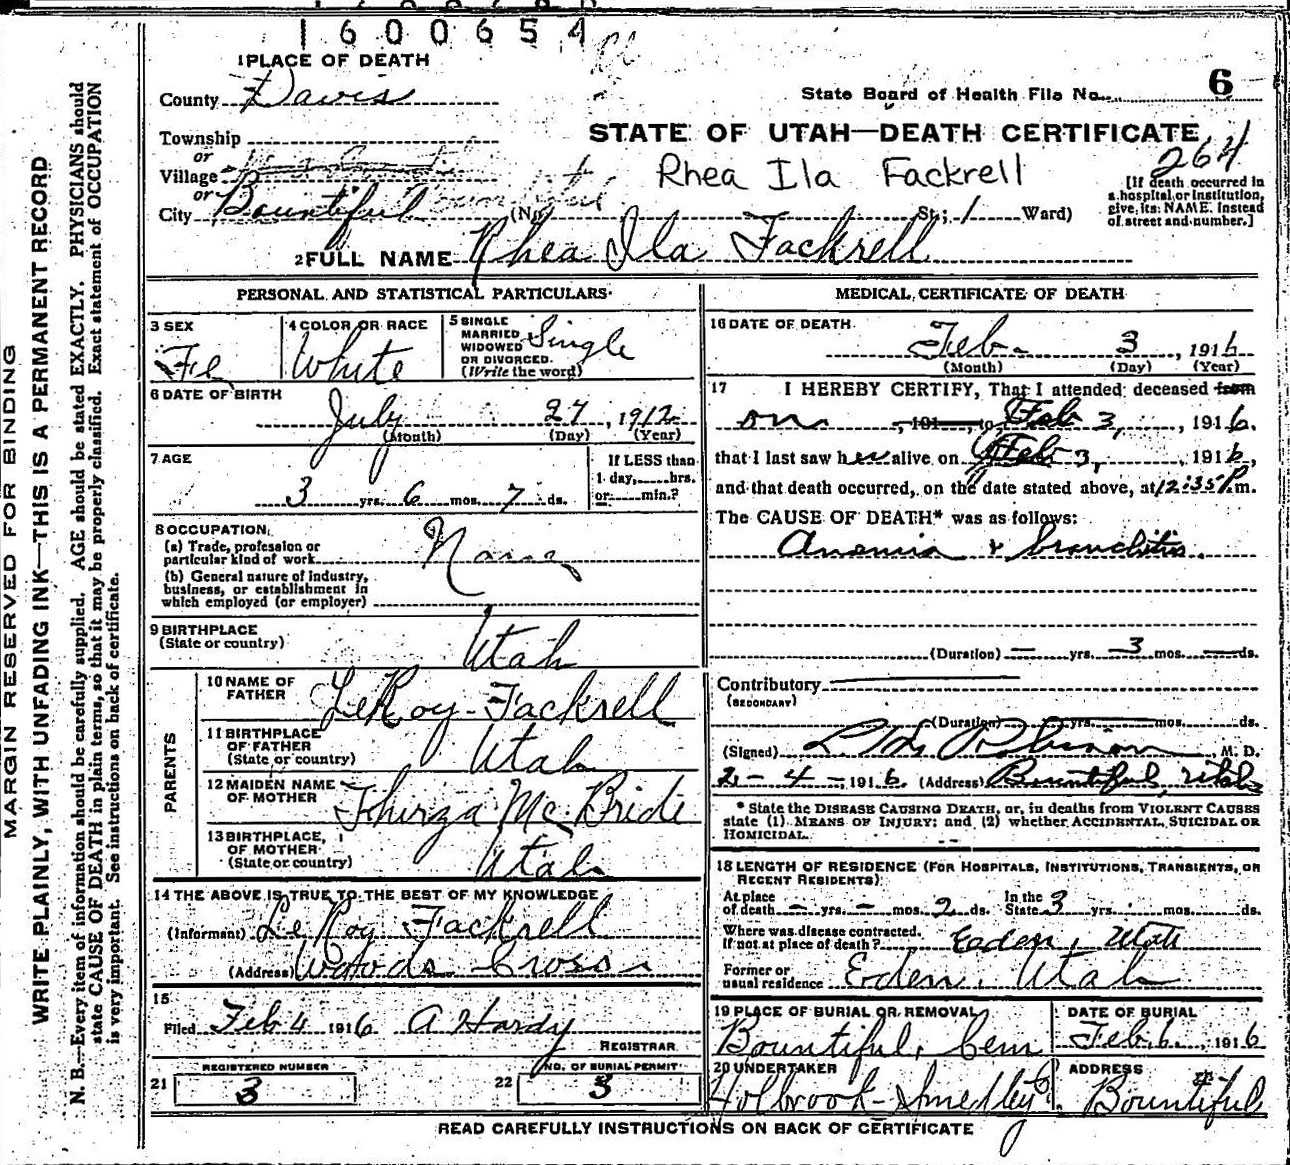 1600654
1 PLACE OF DEATH
County Davis
State Board of Health File No. 6
Township
or
Village
or
City Bountiful (No. St; 1 Ward)
STATE OF UTAH—DEATH CERTIFICATE
264
Rhea Ila Fackrell
[If death occurred in
a hospital or institution,
give its NAME instead
of street and number.]
2 FULL NAME Rhea Ila Fackrell
PERSONAL AND STATISTICAL PARTICULARS
3 SEX
Fe
4 COLOR OR RACE
White
5 SINGLE
MARRIED
WIDOWED
OR DIVORCED.
(Write the word)
Single
6 DATE OF BIRTH
July 27, 1912
(Month) (Day) (Year)
7 AGE
3 yrs. 6 mos. 7 ds.
If LESS than
1 day, hrs.
or min.?
8 OCCUPATION
(a) Trade, profession or
particular kind of work None
(b) General nature of industry,
business, or establishment in
which employed (or employer)
9 BIRTHPLACE
(State or country) Utah
PARENTS
10 NAME OF
FATHER LeRoy Fackrell
11 BIRTHPLACE
OF FATHER
(State or country) Utah
12 MAIDEN NAME
OF MOTHER Thurza McBride
13 BIRTHPLACE
OF MOTHER
(State or country) Utah
14 THE ABOVE IS TRUE TO THE BEST OF MY KNOWLEDGE
(Informant) LeRoy Fackrell
(Address) Woods Cross
15
Filed Feb 4 1916 A Hardy
REGISTRAR
21 REGISTERED NUMBER
3
22 NO. OF BURIAL PERMIT
3
MEDICAL CERTIFICATE OF DEATH
16 DATE OF DEATH
Feb. 3, 1916
(Month) (Day) (Year)
17 I HEREBY CERTIFY, That I attended deceased from
on , 191 , to Feb 3, 1916.
that I last saw her alive on Feb 3, 1916,
and that death occurred, on the date stated above, at 12:35 P.m.
The CAUSE OF DEATH* was as follows:
Anemia & bronchitis.
(Duration) — yrs. 3 mos. — ds.
Contributory
(SECONDARY)
(Duration) yrs. mos. ds.
(Signed) M. D.
2-4-1916. (Address) Bountiful, Utah
* State the DISEASE CAUSING DEATH, or, in deaths from VIOLENT CAUSES
state (1) MEANS OF INJURY; and (2) whether ACCIDENTAL, SUICIDAL OR
HOMICIDAL.
18 LENGTH OF RESIDENCE (FOR HOSPITALS, INSTITUTIONS, TRANSIENTS, OR
RECENT RESIDENTS)
At place
of death — yrs. — mos. 2 ds. In the
State 3 yrs. mos. ds.
Where was disease contracted.
If not at place of death? Eden, Utah
Former or
usual residence Eden, Utah
19 PLACE OF BURIAL OR REMOVAL
Bountiful, Cem
DATE OF BURIAL
Feb. 6, 1916
20 UNDERTAKER
Holbrook-Smedley
ADDRESS
Bountiful
READ CAREFULLY INSTRUCTIONS ON BACK OF CERTIFICATE
MARGIN RESERVED FOR BINDING
WRITE PLAINLY, WITH UNFADING INK—THIS IS A PERMANENT RECORD
N. B.—Every item of information should be carefully supplied. AGE should be stated EXACTLY. PHYSICIANS should
state CAUSE OF DEATH in plain terms, so that it may be properly classified. Exact statement of OCCUPATION
is very important. See instructions on back of certificate.